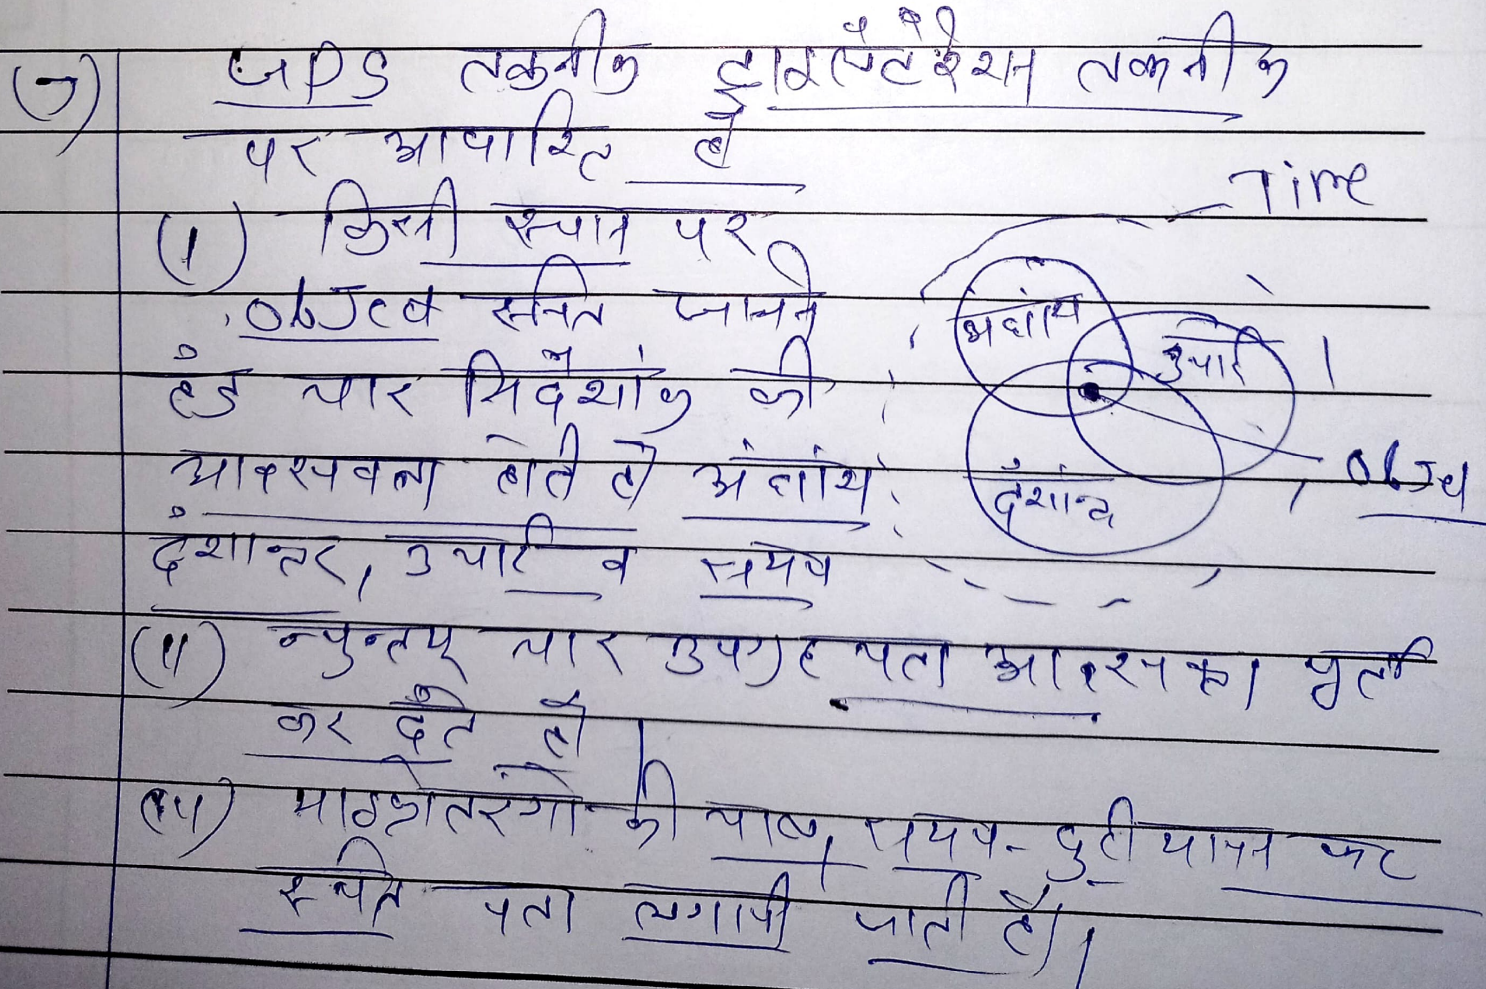 (ज) GPS तकनीक ट्राइलेटरेशन तकनीक
पर आधारित है
Time
(I) किसी स्थान पर
object स्थित जानने
हेतु चार निर्देशांक की
आवश्यकता होती है अक्षांश,
देशान्तर, उचाई व समय
अक्षांश
उचाई
देशान्त
Object
(II) न्युन्तम चार उपग्रह पता आवश्यकता पूर्ती
कर देते है।
(III) माइक्रोतरंगो की चाल, समय-दुरी मापन कर
स्थिति पता लगायी जाती है।